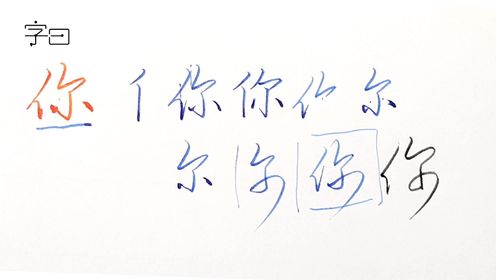 字曰
你 亻 你 你 你 尔
尔 你 你 你